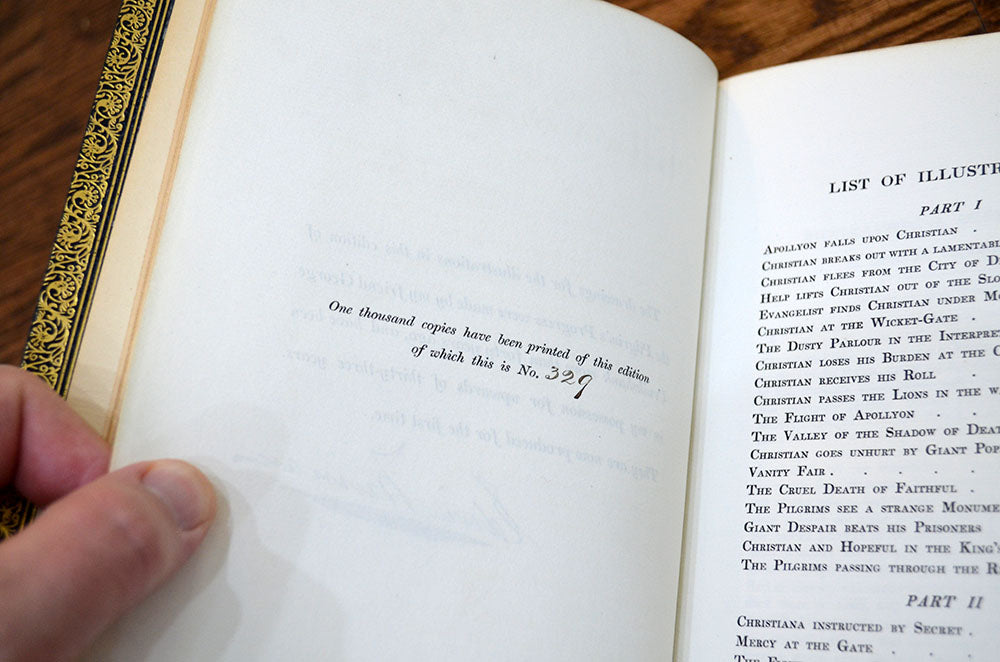 One thousand copies have been printed of this edition
of which this is No. 329
LIST OF ILLUSTR
PART I
APOLLYON FALLS UPON CHRISTIAN .
CHRISTIAN BREAKS OUT WITH A LAMENTABL
CHRISTIAN FLEES FROM THE CITY OF D
HELP LIFTS CHRISTIAN OUT OF THE SLO
EVANGELIST FINDS CHRISTIAN UNDER MO
CHRISTIAN AT THE WICKET-GATE .
THE DUSTY PARLOUR IN THE INTERPRET
CHRISTIAN LOSES HIS BURDEN AT THE C
CHRISTIAN RECEIVES HIS ROLL .
CHRISTIAN PASSES THE LIONS IN THE WA
THE FLIGHT OF APOLLYON . .
THE VALLEY OF THE SHADOW OF DEAT
CHRISTIAN GOES UNHURT BY GIANT POP
VANITY FAIR . . . . .
THE CRUEL DEATH OF FAITHFUL .
THE PILGRIMS SEE A STRANGE MONUME
GIANT DESPAIR BEATS HIS PRISONERS
CHRISTIAN AND HOPEFUL IN THE KING'S
THE PILGRIMS PASSING THROUGH THE R
PART II
CHRISTIANA INSTRUCTED BY SECRET .
MERCY AT THE GATE . . .